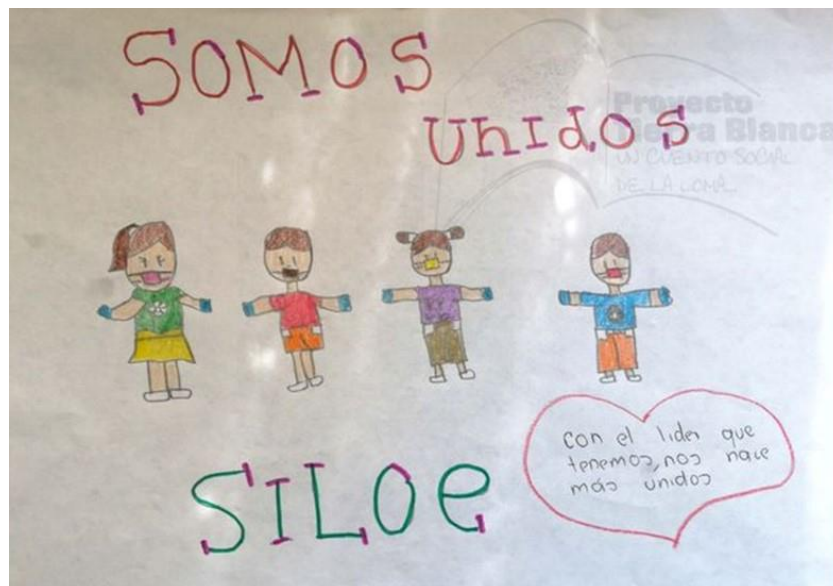 SOMOS
UNIDOS
Proyecto
Tierra Blanca
UN CUENTO SOCIAL
DE LA LOMA
SILOE
con el lider que
tenemos, nos hace
más unidos